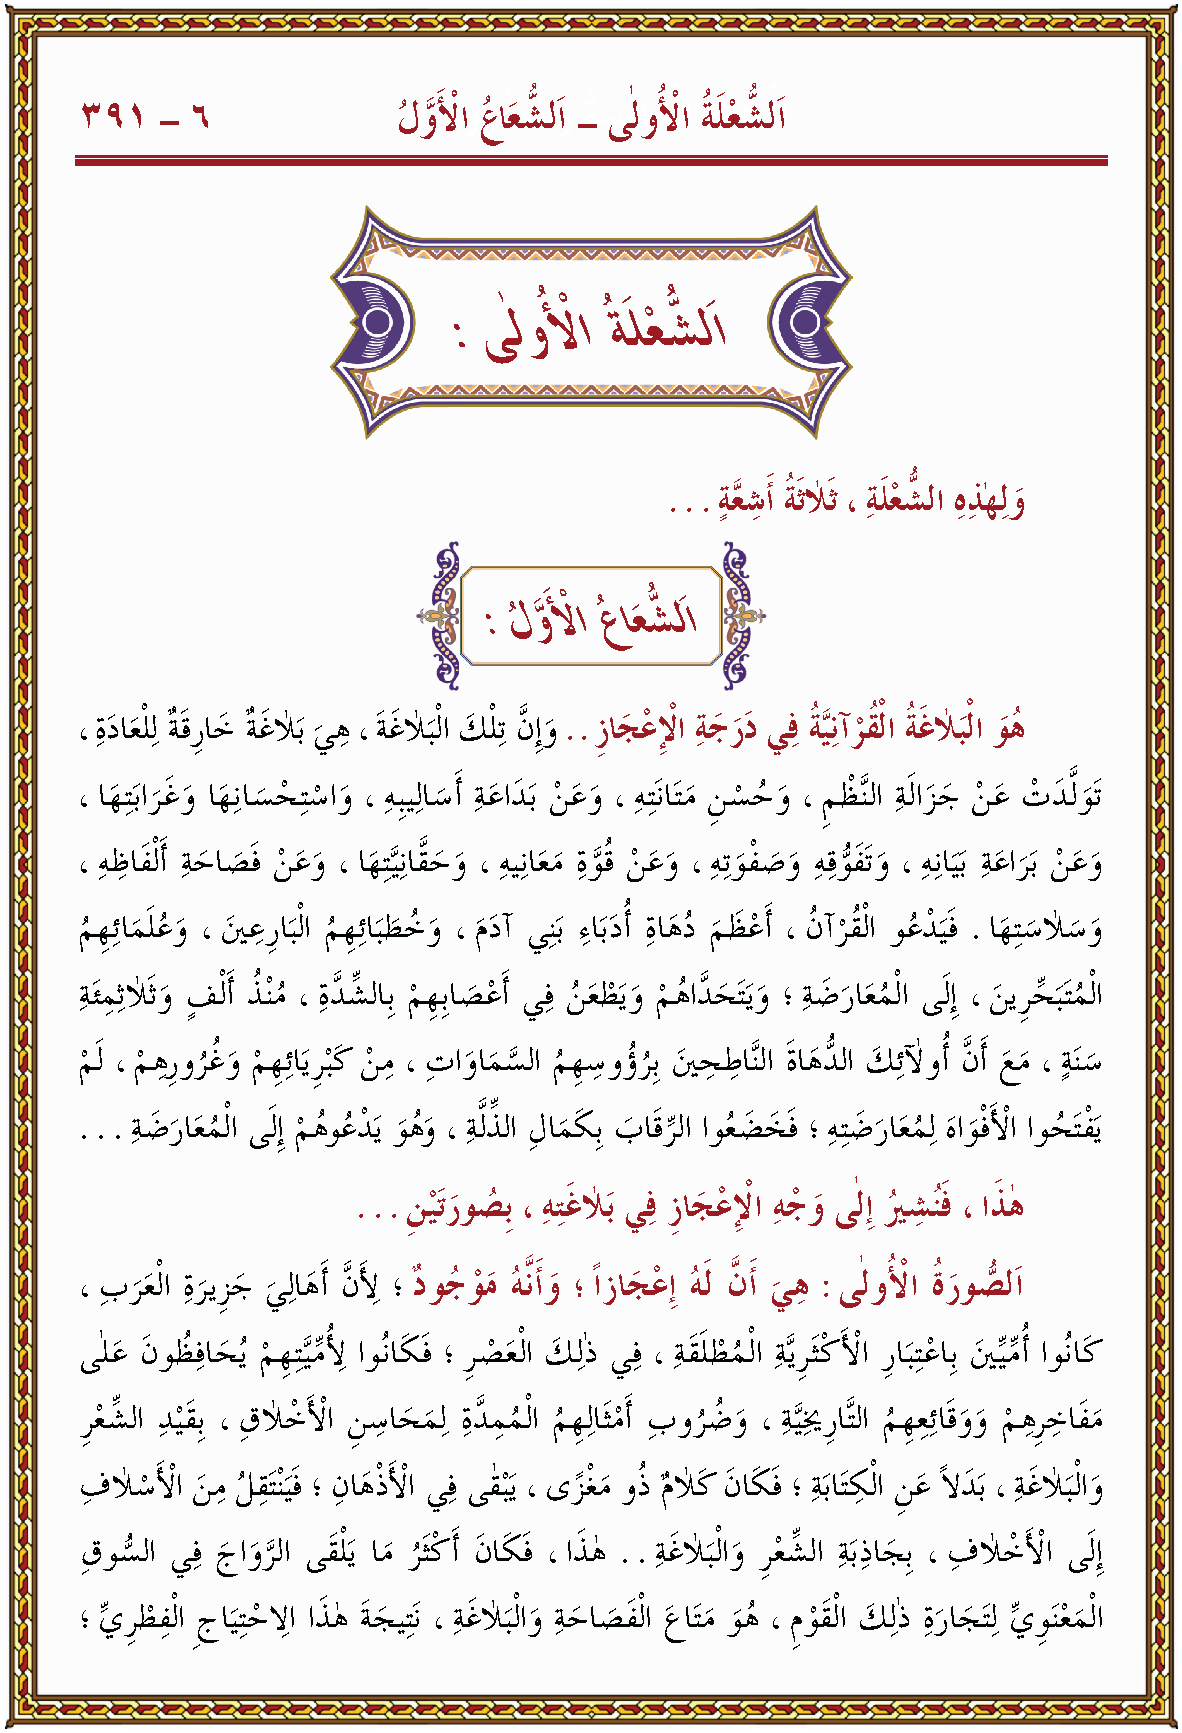 اَلشُّعْلَةُ الْأُولٰى – اَلشُّعَاعُ الْأَوَّلُ ٦ – ٣٩١
اَلشُّعْلَةُ الْأُولٰى :
وَلِهٰذِهِ الشُّعْلَةِ ، ثَلَاثَةُ أَشِعَّةٍ . . .
اَلشُّعَاعُ الْأَوَّلُ :
هُوَ الْبَلَاغَةُ الْقُرْآنِيَّةُ فِي دَرَجَةِ الْإِعْجَازِ . . وَإِنَّ تِلْكَ الْبَلَاغَةَ ، هِيَ بَلَاغَةٌ خَارِقَةٌ لِلْعَادَةِ ،
تَوَلَّدَتْ عَنْ جَزَلَةِ النَّظْمِ ، وَحُسْنِ مَتَانَتِهِ ، وَعَنْ بَدَاعَةِ أَسَالِيبِهِ ، وَاسْتِحْسَانِهَا وَغَرَابَتِهَا ،
وَعَنْ بَرَاعَةِ بَيَانِهِ ، وَتَفَوُّقِهِ وَصَفْوَتِهِ ، وَعَنْ قُوَّةِ مَعَانِيهِ ، وَحَقَّانِيَّتِهَا ، وَعَنْ فَصَاحَةِ أَلْفَاظِهِ ،
وَسَلَاسَتِهَا . فَيَدْعُو الْقُرْآنُ ، أَعْظَمَ دُهَاةِ أُدَبَاءِ بَنِي آدَمَ ، وَخُطَبَائِهِمُ الْبَارِعِينَ ، وَعُلَمَائِهِمُ
الْمُتَبَحِّرِينَ ، إِلَى الْمُعَارَضَةِ ؛ وَيَتَحَدَّاهُمْ وَيَطْعَنُ فِي أَعْصَابِهِمْ بِالشِّدَّةِ ، مُنْذُ أَلْفٍ وَثَلَاثِمِئَةِ
سَنَةٍ ، مَعَ أَنَّ أُولٰئِكَ الدُّهَاةَ النَّاطِحِينَ بِرُؤُوسِهِمُ السَّمَاوَاتِ ، مِنْ كَبْرِيَائِهِمْ وَغُرُورِهِمْ ، لَمْ
يَفْتَحُوا الْأَفْوَاهَ لِمُعَارَضَتِهِ ؛ فَخَضَعُوا الرِّقَابَ بِكَمَالِ الذِّلَّةِ ، وَهُوَ يَدْعُوهُمْ إِلَى الْمُعَارَضَةِ . . .
هٰذَا ، فَنُشِيرُ إِلٰى وَجْهِ الْإِعْجَازِ فِي بَلَاغَتِهِ ، بِصُورَتَيْنِ . . .
اَلصُّورَةُ الْأُولٰى : هِيَ أَنَّ لَهُ إِعْجَازاً ؛ وَأَنَّهُ مَوْجُودٌ ؛ لِأَنَّ أَهَالِيَ جَزِيرَةِ الْعَرَبِ ،
كَانُوا أُمِّيِّينَ بِاعْتِبَارِ الْأَكْثَرِيَّةِ الْمُطْلَقَةِ ، فِي ذٰلِكَ الْعَصْرِ ؛ فَكَانُوا لِأُمِّيَّتِهِمْ يُحَافِظُونَ عَلٰى
مَفَاخِرِهِمْ وَوَقَائِعِهِمُ التَّارِيخِيَّةِ ، وَضُرُوبِ أَمْثَالِهِمُ الْمُمِدَّةِ لِمَحَاسِنِ الْأَخْلَاقِ ، بِقَيْدِ الشِّعْرِ
وَالْبَلَاغَةِ ، بَدَلاً عَنِ الْكِتَابَةِ ؛ فَكَانَ كَلَامٌ ذُو مَغْزًى ، يَبْقٰى فِي الْأَذْهَانِ ؛ فَيَنْتَقِلُ مِنَ الْأَسْلَافِ
إِلَى الْأَخْلَافِ ، بِجَاذِبَةِ الشِّعْرِ وَالْبَلَاغَةِ . . هٰذَا ، فَكَانَ أَكْثَرُ مَا يَلْقَى الرَّوَاجَ فِي السُّوقِ
الْمَعْنَوِيِّ لِتَجَارَةِ ذٰلِكَ الْقَوْمِ ، هُوَ مَتَاعَ الْفَصَاحَةِ وَالْبَلَاغَةِ ، نَتِيجَةَ هٰذَا الِاحْتِيَاجِ الْفِطْرِيِّ ؛